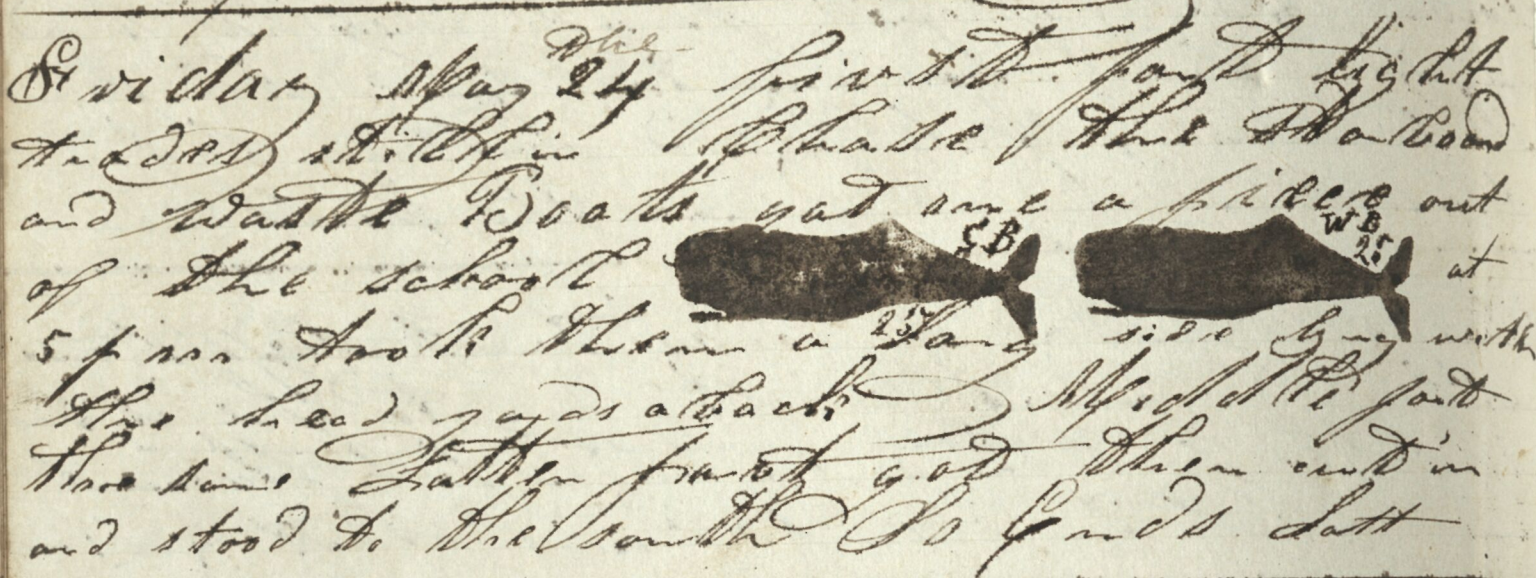 Friday May 24 the first part light
trades still in Chase the Starboard
and waste Boats got one a piece out
of the school S B 25 W B 25 at
5 p m took them a Long side lyng with
the head yards aback Middle part
the same Latter part got them cut in
and stood to the south So Ends Latt